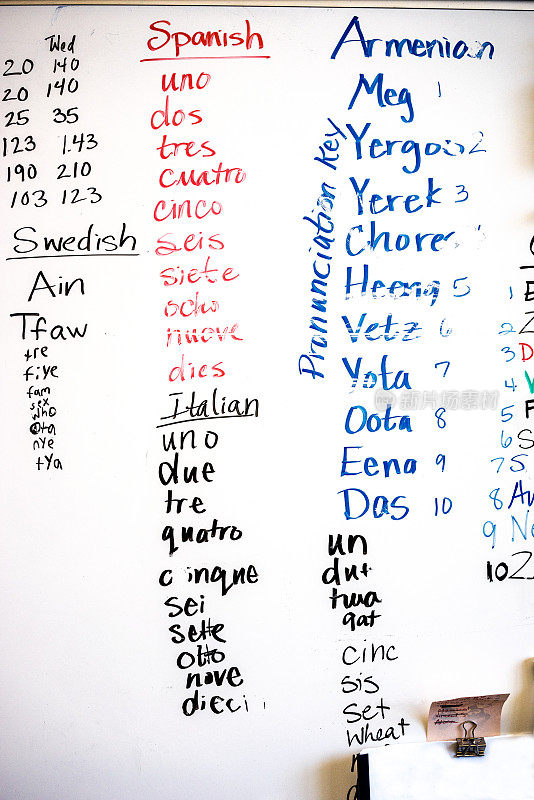 Wed
20 140
20 140
25 35
123 1.43
190 210
103 123
Swedish
Ain
Tfaw
tre
fiye
fam
sex
who
Ota
nye
tya
Spanish
uno
dos
tres
cuatro
cinco
seis
siete
ocho
nueve
dies
Italian
uno
due
tre
quatro
cinque
sei
sette
otto
nove
dieci
Armenian
Pronunciation Key
Meg 1
Yergoo 2
Yerek 3
Chore
Heeng 5
Vetz 6
Yota 7
Oota 8
Eena 9
Das 10
un
dut
twa
qat
cinc
sis
set
wheat
1
2
3 D
4
5
6 S
7 S
8 Au
9 Ne
10 Z
新片场素材